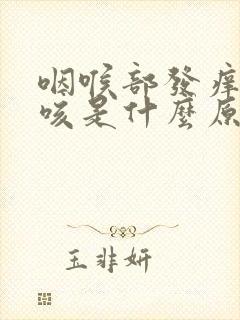 咽喉部發癢
咳是什麼原
玉非妍